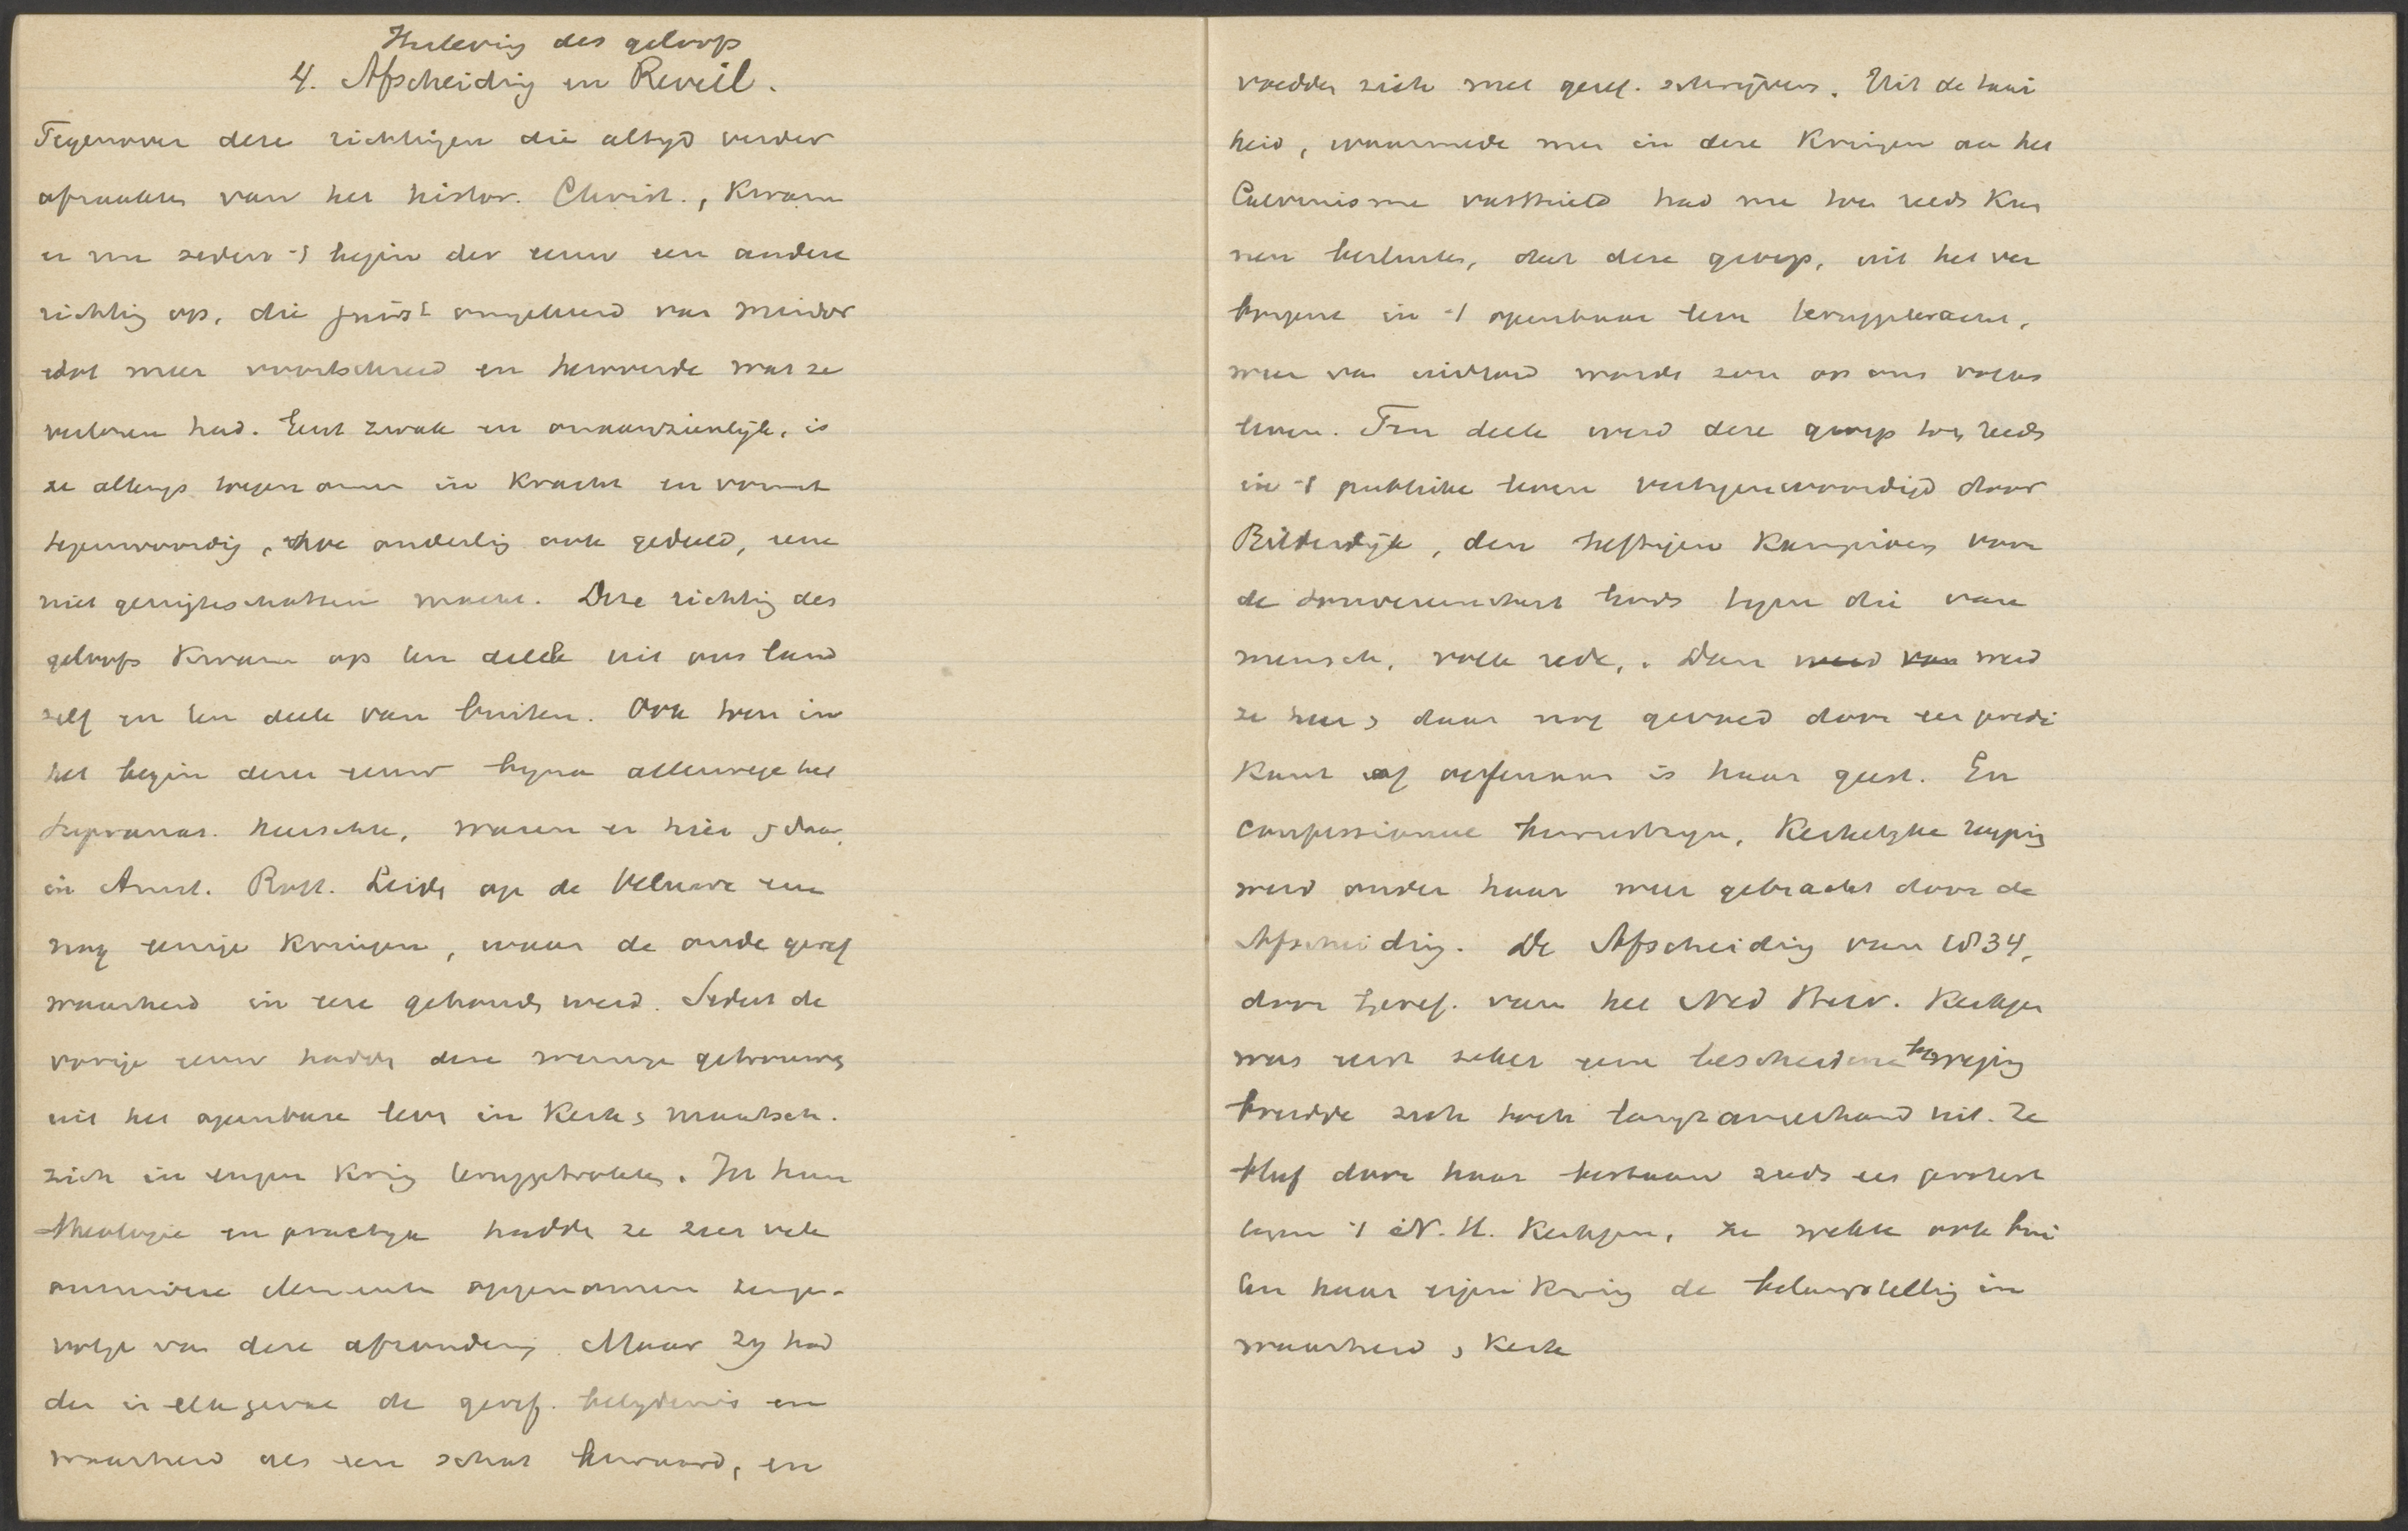 Herleving des geloofs
4. Afscheiding en Reveil.
Tegenover deze richtingen die altyd verder
afraakten van het histor. Christ., kwam
er nu sedert 't begin der eeuw een andere
richting op, die juist omgekeerd van minder
tot meer voortschreed en herwonde wat ze
verloren had. Eerst zwak en onaanzienlijk, is
ze allengs toegenomen in kracht en vormt
tegenwoordig, hoe onderling ook gedeeld, eene
niet gering te schatten macht. Deze richting des
geloofs kwam op ten deele uit ons land
zelf en ten deele van buiten. Ook toen in
het begin dezer eeuw byna allerwege het
supranat. heerschte, waren er hier & daar,
in Amst. Rott. Leiden op de Veluwe enz
nog eenige kringen, waar de oude geref
waarheid in eere gehouden werd. Sedert de
vorige eeuw hadden deze weinige getrouwen
uit het openbare leven in Kerk & maatsch.
zich in engen kring teruggetrokken. In hun
theologie en practyk hadden ze zeer vele
onzuivere elementen opgenomen tenge-
volge van deze afzondering. Maar zy had
den in elk geval de geref. belydenis en
waarheid als een schat bewaard, en
voedden zich met geref. schryvers. Uit de taai
heid, waarmede men in deze kringen aan het
Calvinisme vasthield had men toen reeds kun
nen besluiten, dat deze groep, uit het ver
borgene in 't openbaar leven teruggebracht,
weer van invloed worden zou op ons volks
leven. Ten deele werd deze groep toen reeds
in 't publieke leven vertegenwoordigd door
Bilderdijk, den heftigen kampioen voor
de souvereiniteit Gods tegen die van
mensch, volk rede,. Dan werd van werd
ze hier & daar nog gevoed door een predi
kant of oefenaar in haar geest. En
confessioneel kerkelyke
werd onder haar weer gebracht door de
Afscheiding. De Afscheiding van 1834,
door Geref. van het Ned Herv. Kerkgen
was eerst zeker eene bescheidene beweging
breidde zich toch langzamerhand uit. Ze
bleef door haar bestaan reeds een protest
tegen 't N. H. Kerkgen, ze wekte ook bui
ten haar eigen kring de belangstelling in
waarheid & Kerk